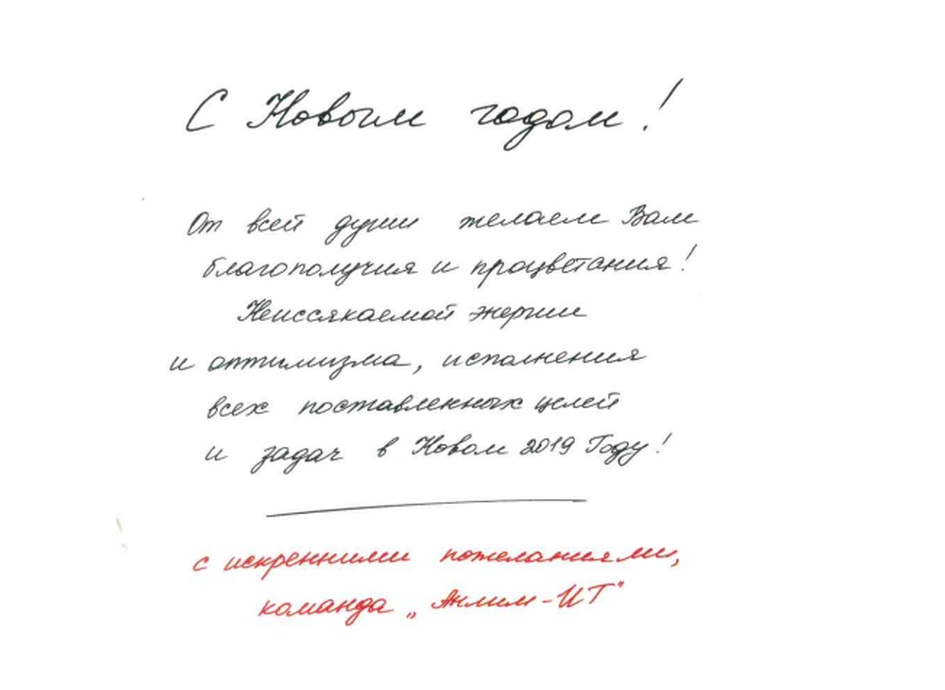 С Новым годом!
От всей души желаем Вам
благополучия и процветания!
Неиссякаемой энергии
и оптимизма, исполнения
всех поставленных целей
и задач в Новом 2019 Году!
с искренними пожеланиями,
команда „Анлим-ИТ"